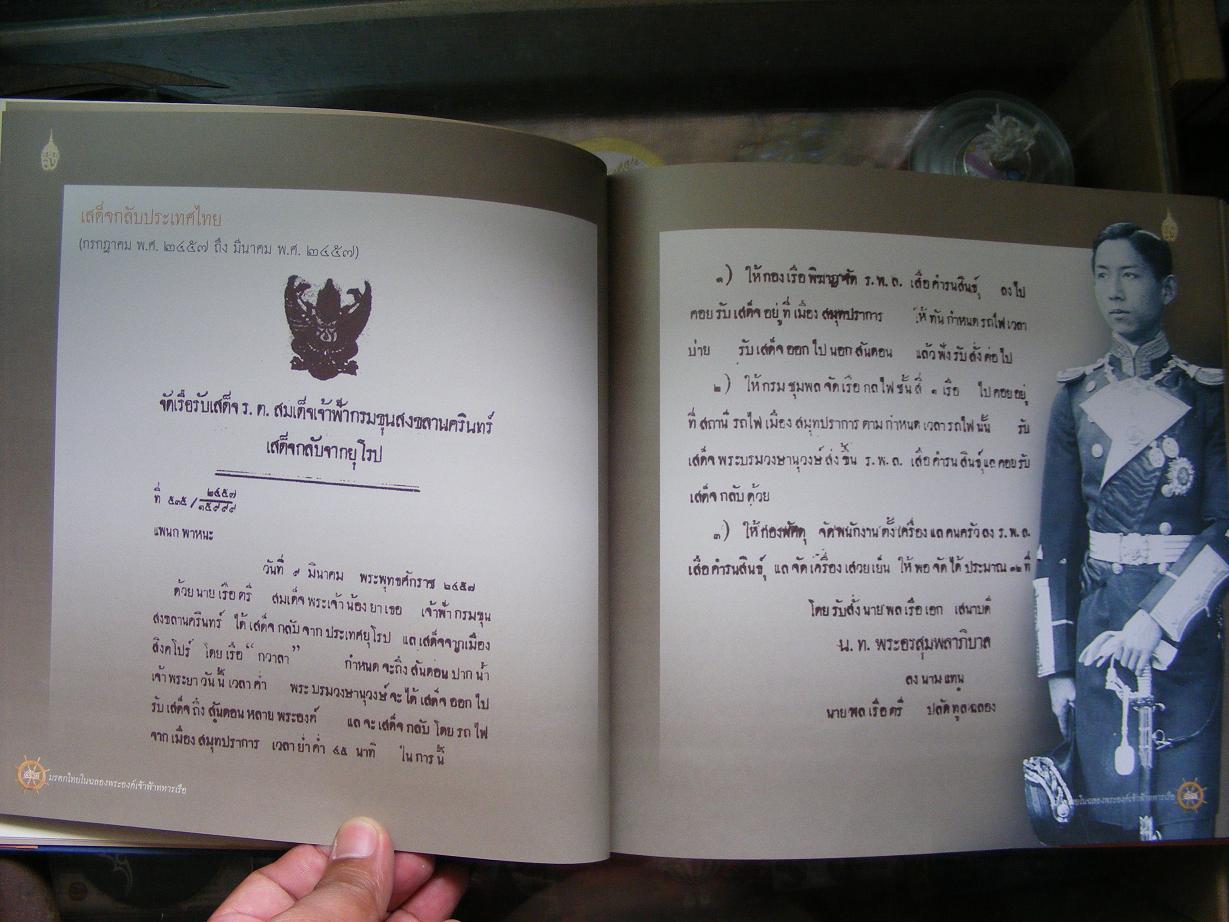 เสด็จกลับประเทศไทย
(กรกฎาคม พ.ศ. ๒๔๕๗ ถึง มีนาคม พ.ศ. ๒๔๕๗)
จัดเรือรับเสด็จ ร. ต. สมเด็จเจ้าฟ้ากรมขุนสงขลานครินทร์
เสด็จกลับจากยุโรป
ที่ ๕๓๕ / ๒๔๕๗
๑๕๙๙๙
แพนก พาหนะ
วันที่ ๙ มีนาคม พระพุทธศักราช ๒๔๕๗
ด้วยนายเรือตรี สมเด็จพระเจ้าน้องยาเธอ เจ้าฟ้ากรมขุน
สงขลานครินทร์ ได้เสด็จกลับจากประเทศยุโรป แลเสด็จจากเมือง
สิงคโปร์ โดยเรือ “กวาลา” กำหนดจะถึงสันดอนปากน้ำ
เจ้าพระยาวันนี้เวลาค่ำ พระบรมวงษานุวงษ์จะได้เสด็จออกไป
รับเสด็จถึงสันดอนหลายพระองค์ แลจะเสด็จกลับโดยรถไฟ
จากเมืองสมุทปราการ เวลาย่ำค่ำ ๔๕ นาที ในการนี้
มรดกไทยในฉลองพระองค์เจ้าฟ้าทหารเรือ
๑) ให้กองเรือพิฆาฏจัด ร.พ.ล. เสือคำรนสินธุ์ ลงไป
คอยรับเสด็จอยู่ที่เมืองสมุทปราการ ให้ทันกำหนดรถไฟเวลา
บ่าย รับเสด็จออกไปนอกสันดอน แล้วฟังรับสั่งต่อไป
๒) ให้กรมชุมพลจัดเรือกลไฟชั้นสี่ ๑ เรือ ไปคอยอยู่
ที่สถานีรถไฟเมืองสมุทปราการตามกำหนดเวลารถไฟนั้น รับ
เสด็จพระบรมวงษานุวงษ์ส่งขึ้น ร.พ.ล. เสือคำรนสินธุ์แลคอยรับ
เสด็จกลับด้วย
๓) ให้กองพัศดุ จัดพนักงานตั้งเครื่องแลคนครัวลง ร.พ.ล.
เสือคำรนสินธุ์ แลจัดเครื่องเสวยเย็น ให้พอจัดได้ประมาณ ๑๒ ที่
โดยรับสั่งนายพลเรือเอก เสนาบดี
น. ท. พระอรสุมพลาภิบาล
ลงนามแทน
นายพลเรือตรี ปลัดทูลฉลอง
ในฉลองพระองค์เจ้าฟ้าทหารเรือ